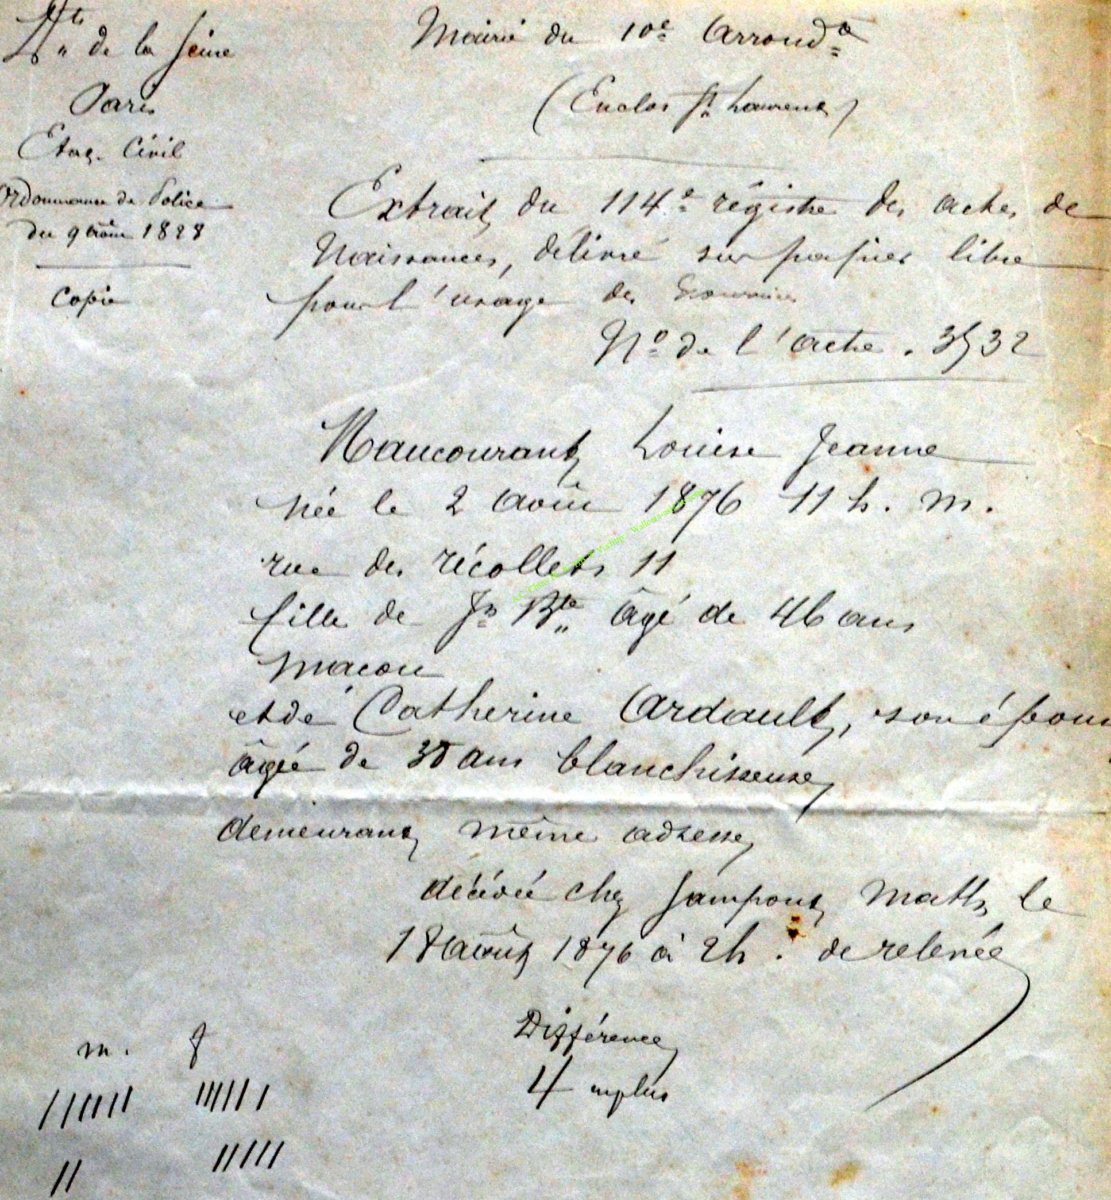 Dts de la Seine
Paris
Etat Civil
Ordonnance de Police
du 9 1828
Copie
Mairie du 10e Arrondt
(Enclos St Laurent)
Extrait du 114e régistre des actes de
Naissances, délivré sur papier libre
pour l'usage des
No de l'acte. 3532
Naucourant Louise Jeanne
née le 2 août 1876 11 h. m.
rue des récollets 11
fille de Jn Bte âgé de 46 ans
macon
et de Catherine Ardault, son épouse
âgée de ans blanchisseuse
demeurant même adresse
décédée chez Jampont Math, le
18 août 1876 à 2h. de relevée
Différence
4 en plus
m. f